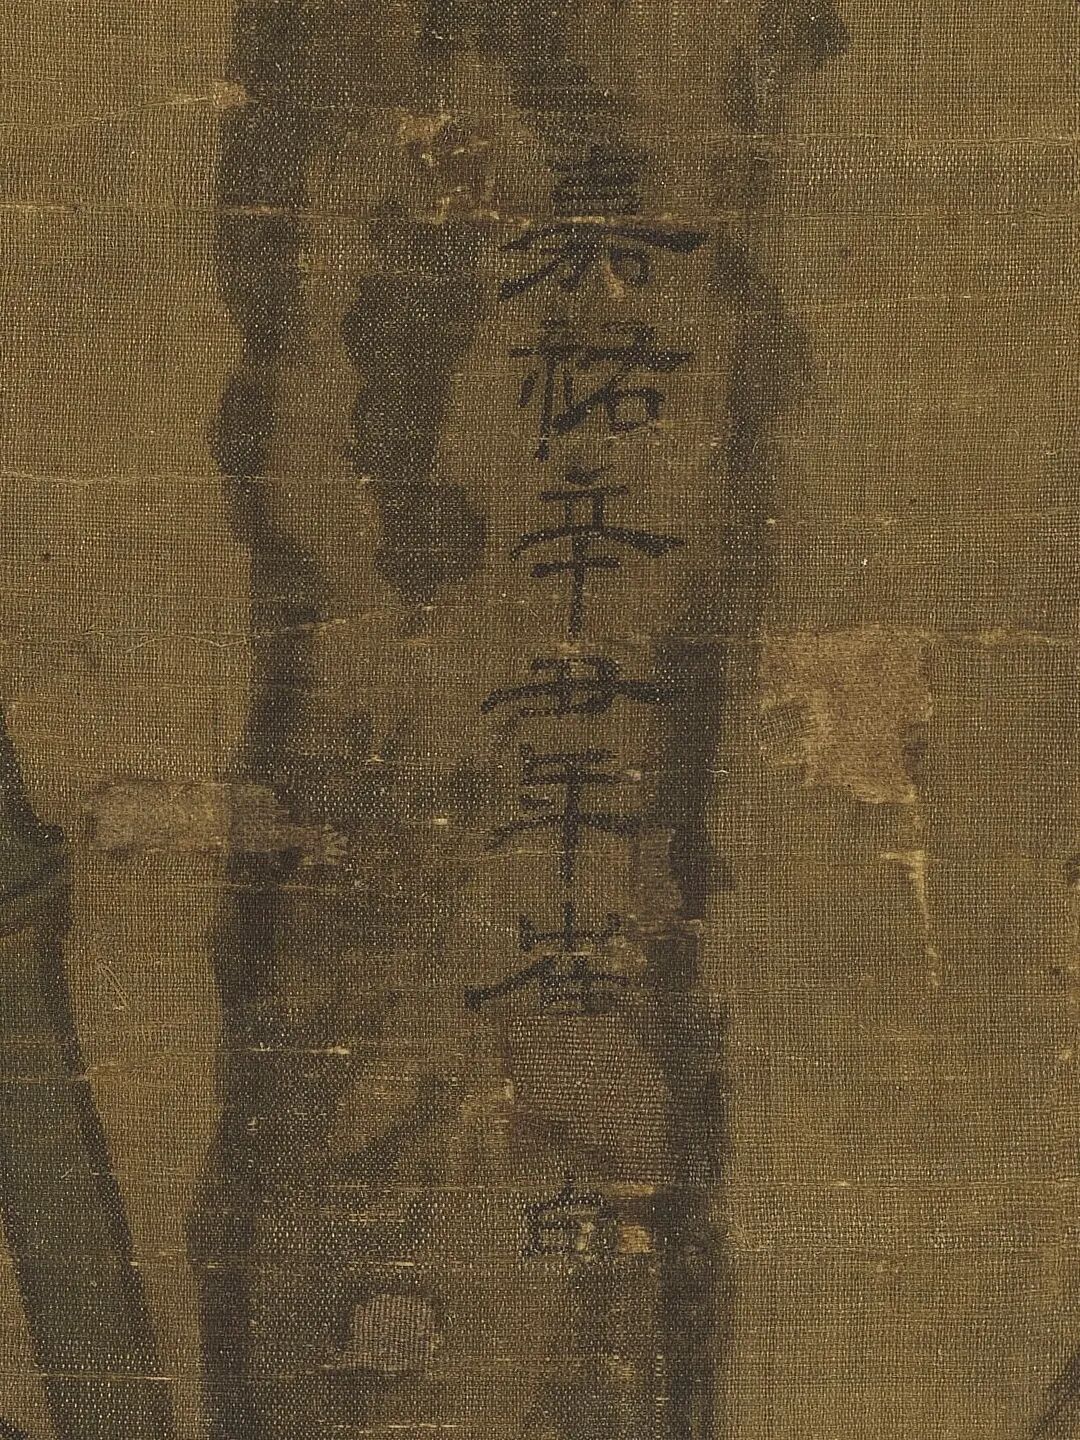 嘉祐辛丑年崔白